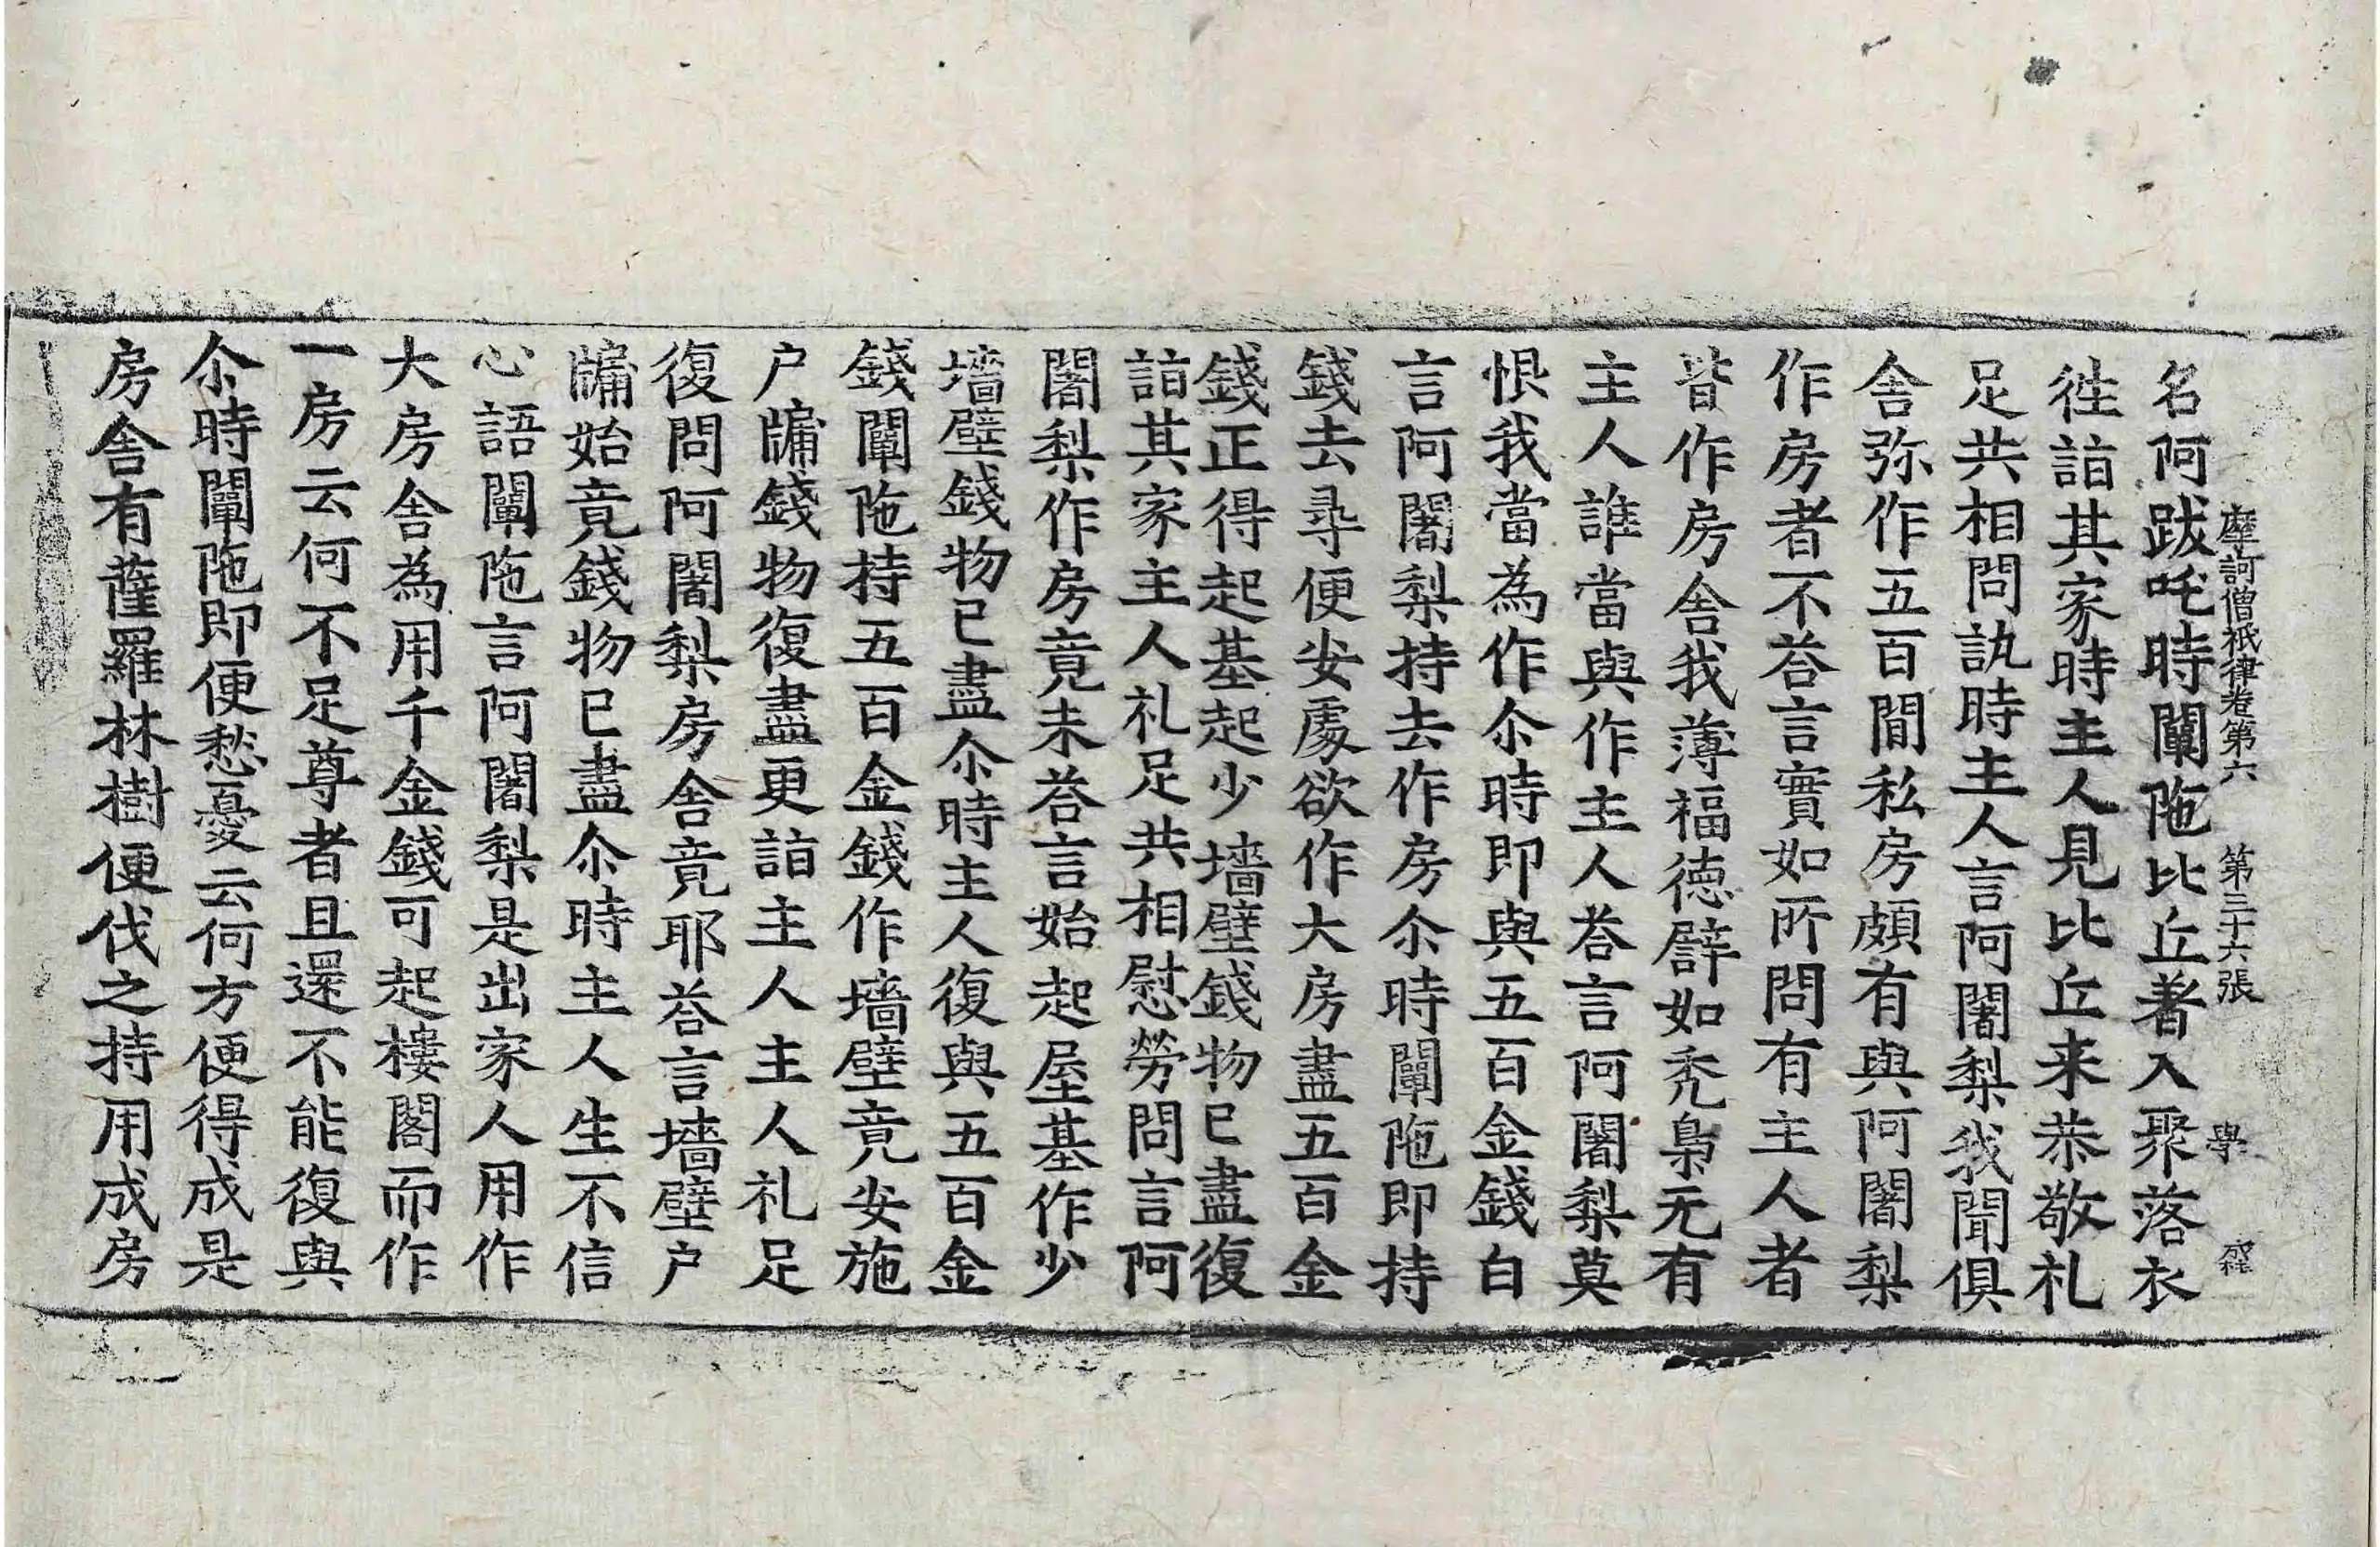 摩訶僧祇律卷第六 第三十六張 學
名阿跋吒時闡陁比丘著入聚落衣
徃詣其家時主人見比丘来恭敬礼
足共相問訊時主人言阿闍梨我聞俱
舍弥作五百閒私房頗有與阿闍梨
作房者不荅言實如所問有主人者
皆作房舍我薄福德譬如禿梟无有
主人誰當與作主人荅言阿闍梨莫
恨我當為作尒時即與五百金錢白
言阿闍梨持去作房尒時闡陁即持
錢去尋便安處欲作大房盡五百金
錢正得起基起少墻壁錢物已盡復
詣其家主人礼足共相慰勞問言阿
闍梨作房竟未荅言始起屋基作少
墻壁錢物已盡尒時主人復與五百金
錢闡陁持五百金錢作墻壁竟安施
户牖錢物復盡更詣主人主人礼足
復問阿闍梨房舍竟耶荅言墻壁户
牖始竟錢物已盡尒時主人生不信
心語闡陁言阿闍梨是出家人用作
大房舍為用千金錢可起樓閣而作
一房云何不足尊者且還不能復與
尒時闡陁即便愁憂云何方便得成是
房舍有薩羅林樹便伐之持用成房